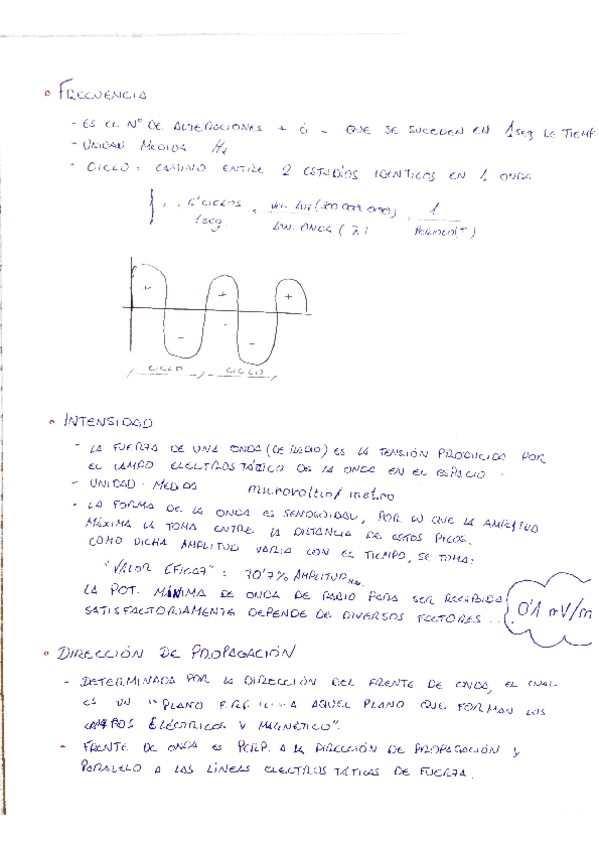 FRECUENCIA
- ES EL Nº DE ALTERACIONES + ó - QUE SE SUCEDEN EN 1 seg DE TIEMP
- UNIDAD MEDIDA Hz
- CICLO: CAMINO ENTRE 2 ESTUDIOS IDENTICOS EN 1 ONDA
CICLOS vel. luz (300 000 000) 1
1 seg. LON. ONDA (λ) PERIODO (T)
+ + +
- - -
CICLO CICLO
INTENSIDAD
- LA FUERZA DE UNA ONDA (DE RADIO) ES LA TENSIÓN PRODUCIDA POR
EL CAMPO ELECTROSTÁTICO DE LA ONDA EN EL ESPACIO.
- UNIDAD MEDIDA microvoltio/metro
- LA FORMA DE LA ONDA ES SENOSOIDAL, POR LO QUE LA AMPLITUD
MÁXIMA LA TOMA ENTRE LA DISTANCIA DE ESTOS PICOS.
COMO DICHA AMPLITUD VARIA CON EL TIEMPO, SE TOMA:
"VALOR EFICAZ" = 70'7% AMPLITUD MAX.
LA POT. MÁXIMA DE ONDA DE RADIO PARA SER RECIBIDA
SATISFACTORIAMENTE DEPENDE DE DIVERSOS FACTORES...
0'1 mV/m
DIRECCIÓN DE PROPAGACIÓN
- DETERMINADA POR LA DIRECCIÓN DEL FRENTE DE ONDA, EL CUAL
ES UN "PLANO AQUEL PLANO QUE FORMAN LOS
CAMPOS ELÉCTRICOS Y MAGNÉTICO".
- FRENTE DE ONDA ES PERP. A LA DIRECCIÓN DE PROPAGACIÓN Y
PARALELO A LAS LÍNEAS ELECTROSTÁTICAS DE FUERZA.